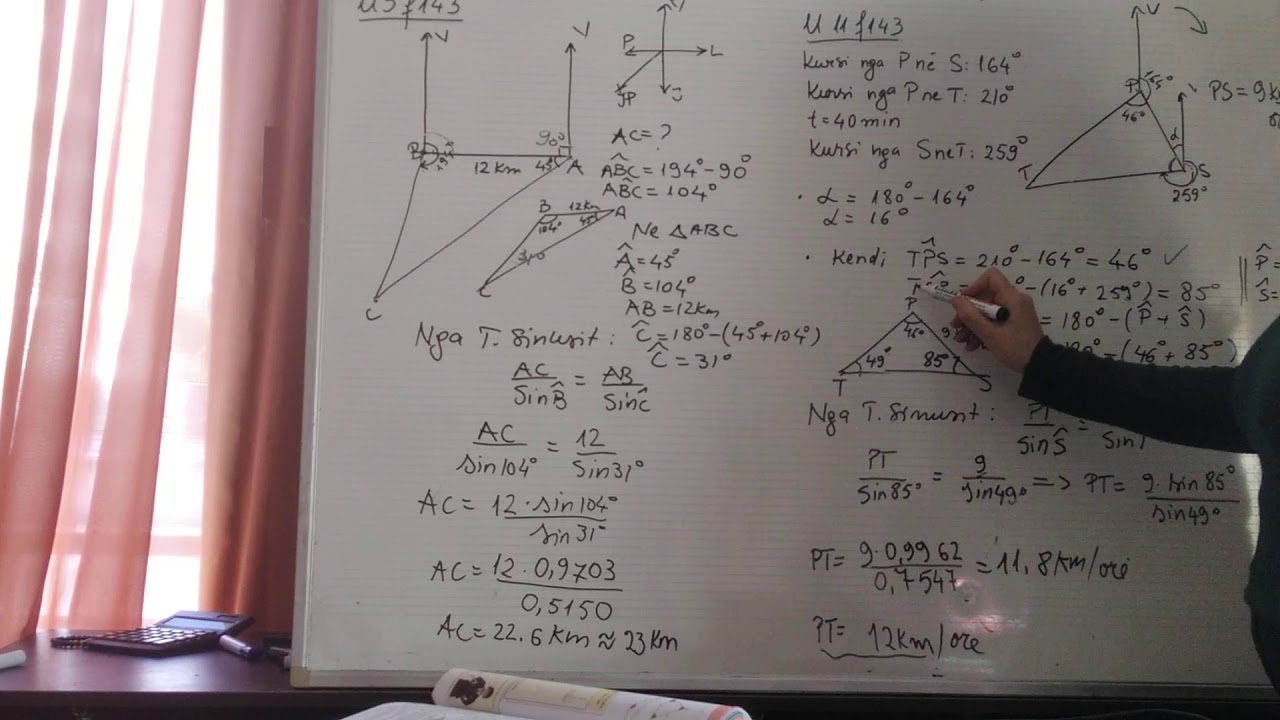 U 5 f 143
V
V
B
12 km
90°
45°
A
C
P
L
J
JP
AC = ?
AB̂C = 194° - 90°
AB̂C = 104°
B
12 km
A
104°
45°
31°
C
Ne △ABC
Â = 45°
B̂ = 104°
AB = 12km
Nga T. Sinusit : Ĉ = 180° - (45° + 104°)
Ĉ = 31°
AC / Sin B̂ = AB / Sin Ĉ
AC / sin 104° = 12 / Sin 31°
AC = 12 · sin 104° / sin 31°
AC = 12 · 0,9703 / 0,5150
AC = 22.6 km ≈ 23 km
U 11 f 143
Kursi nga P në S: 164°
Kursi nga P ne T: 210°
t = 40 min
Kursi nga S ne T: 259°
V
P
46°
PS = 9
α
S
T
259°
· α = 180° - 164°
α = 16°
· Kendi TP̂S = 210° - 164° = 46° ✓
- (16° + 259°) = 85°
= 180° - (P̂ + Ŝ)
- (46° + 85°)
P̂ =
Ŝ =
P
46°
9
49°
85°
T
S
Nga T. Sinusit : PT / sin Ŝ =
PT / Sin 85° = 9 / sin 49° => PT = 9 · sin 85° / sin 49°
PT = 9 · 0,9962 / 0,7547 = 11,8 km/orë
PT = 12 km/ore